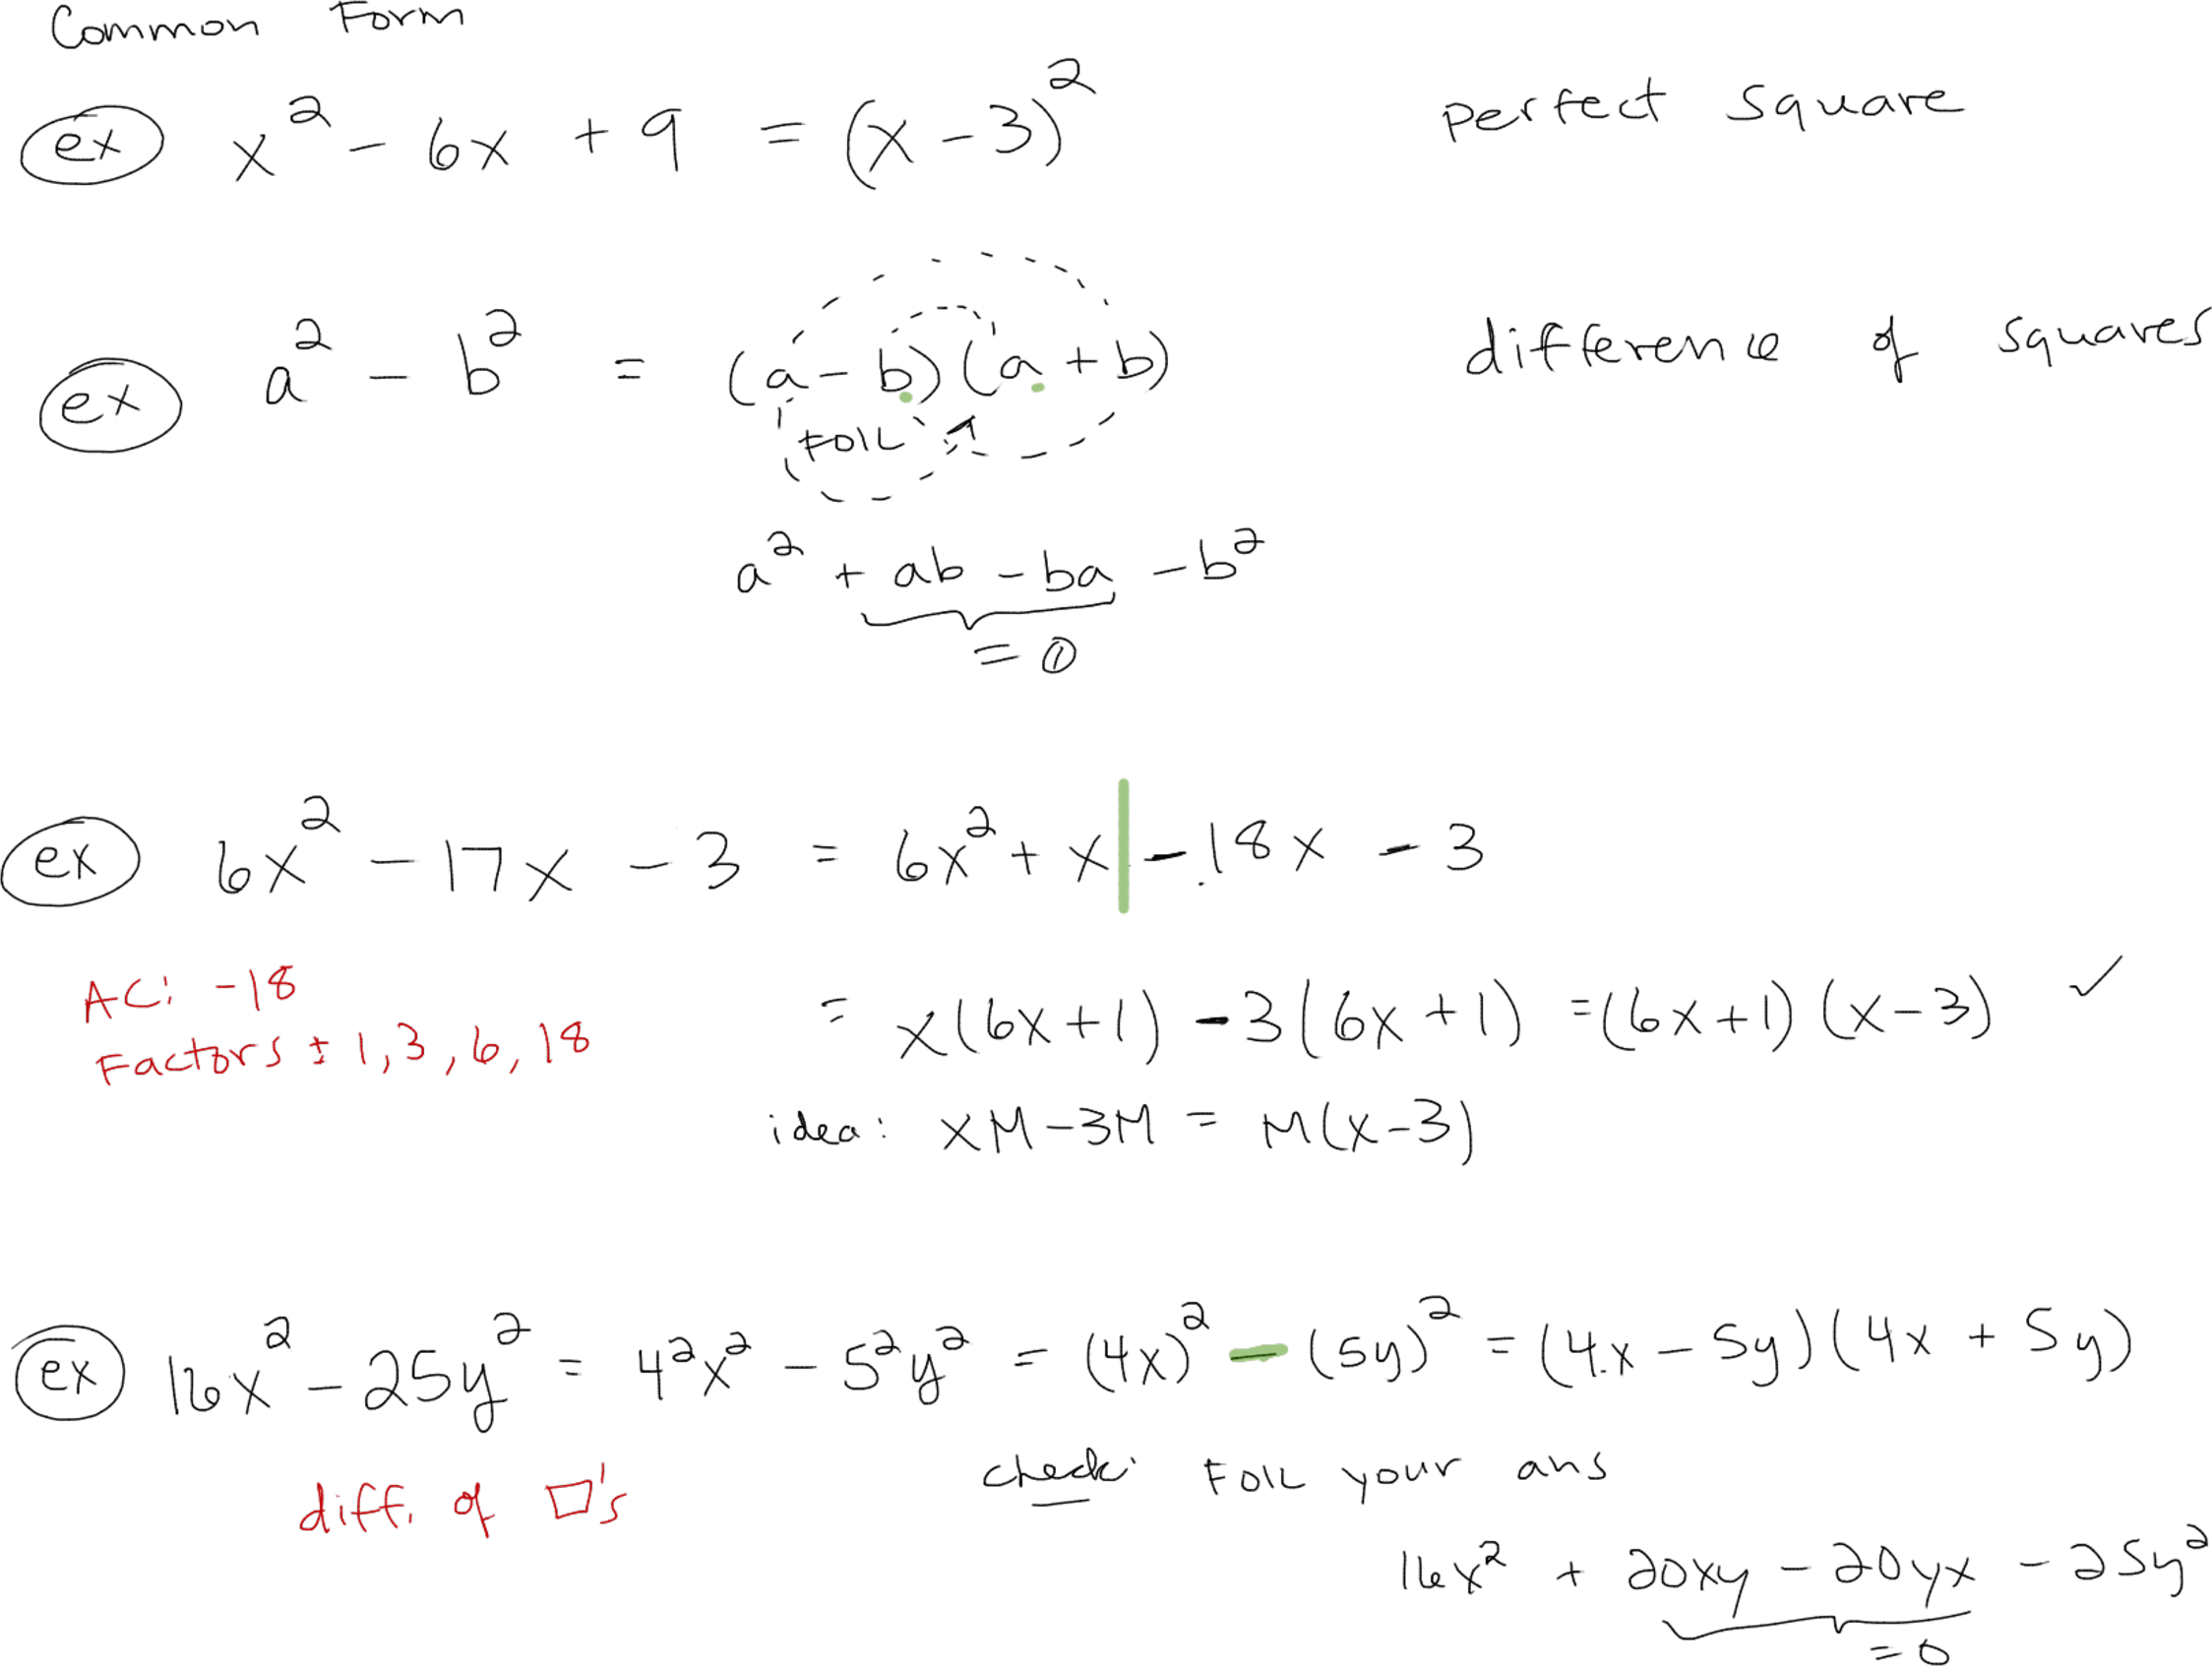 Common Form
ex x² - 6x + 9 = (x - 3)² perfect square
ex a² - b² = (a - b)(a + b) difference of squares
FOIL
a² + ab - ba - b²
= 0
ex 6x² - 17x - 3 = 6x² + x | - 18x - 3
AC: -18
= x(6x+1) - 3(6x+1) = (6x+1)(x-3) ✓
Factors ± 1, 3, 6, 18
idea: xM - 3M = M(x-3)
ex 16x² - 25y² = 4²x² - 5²y² = (4x)² - (5y)² = (4x - 5y)(4x + 5y)
diff. of □'s
check: FOIL your ans
16x² + 20xy - 20yx - 25y²
= 0